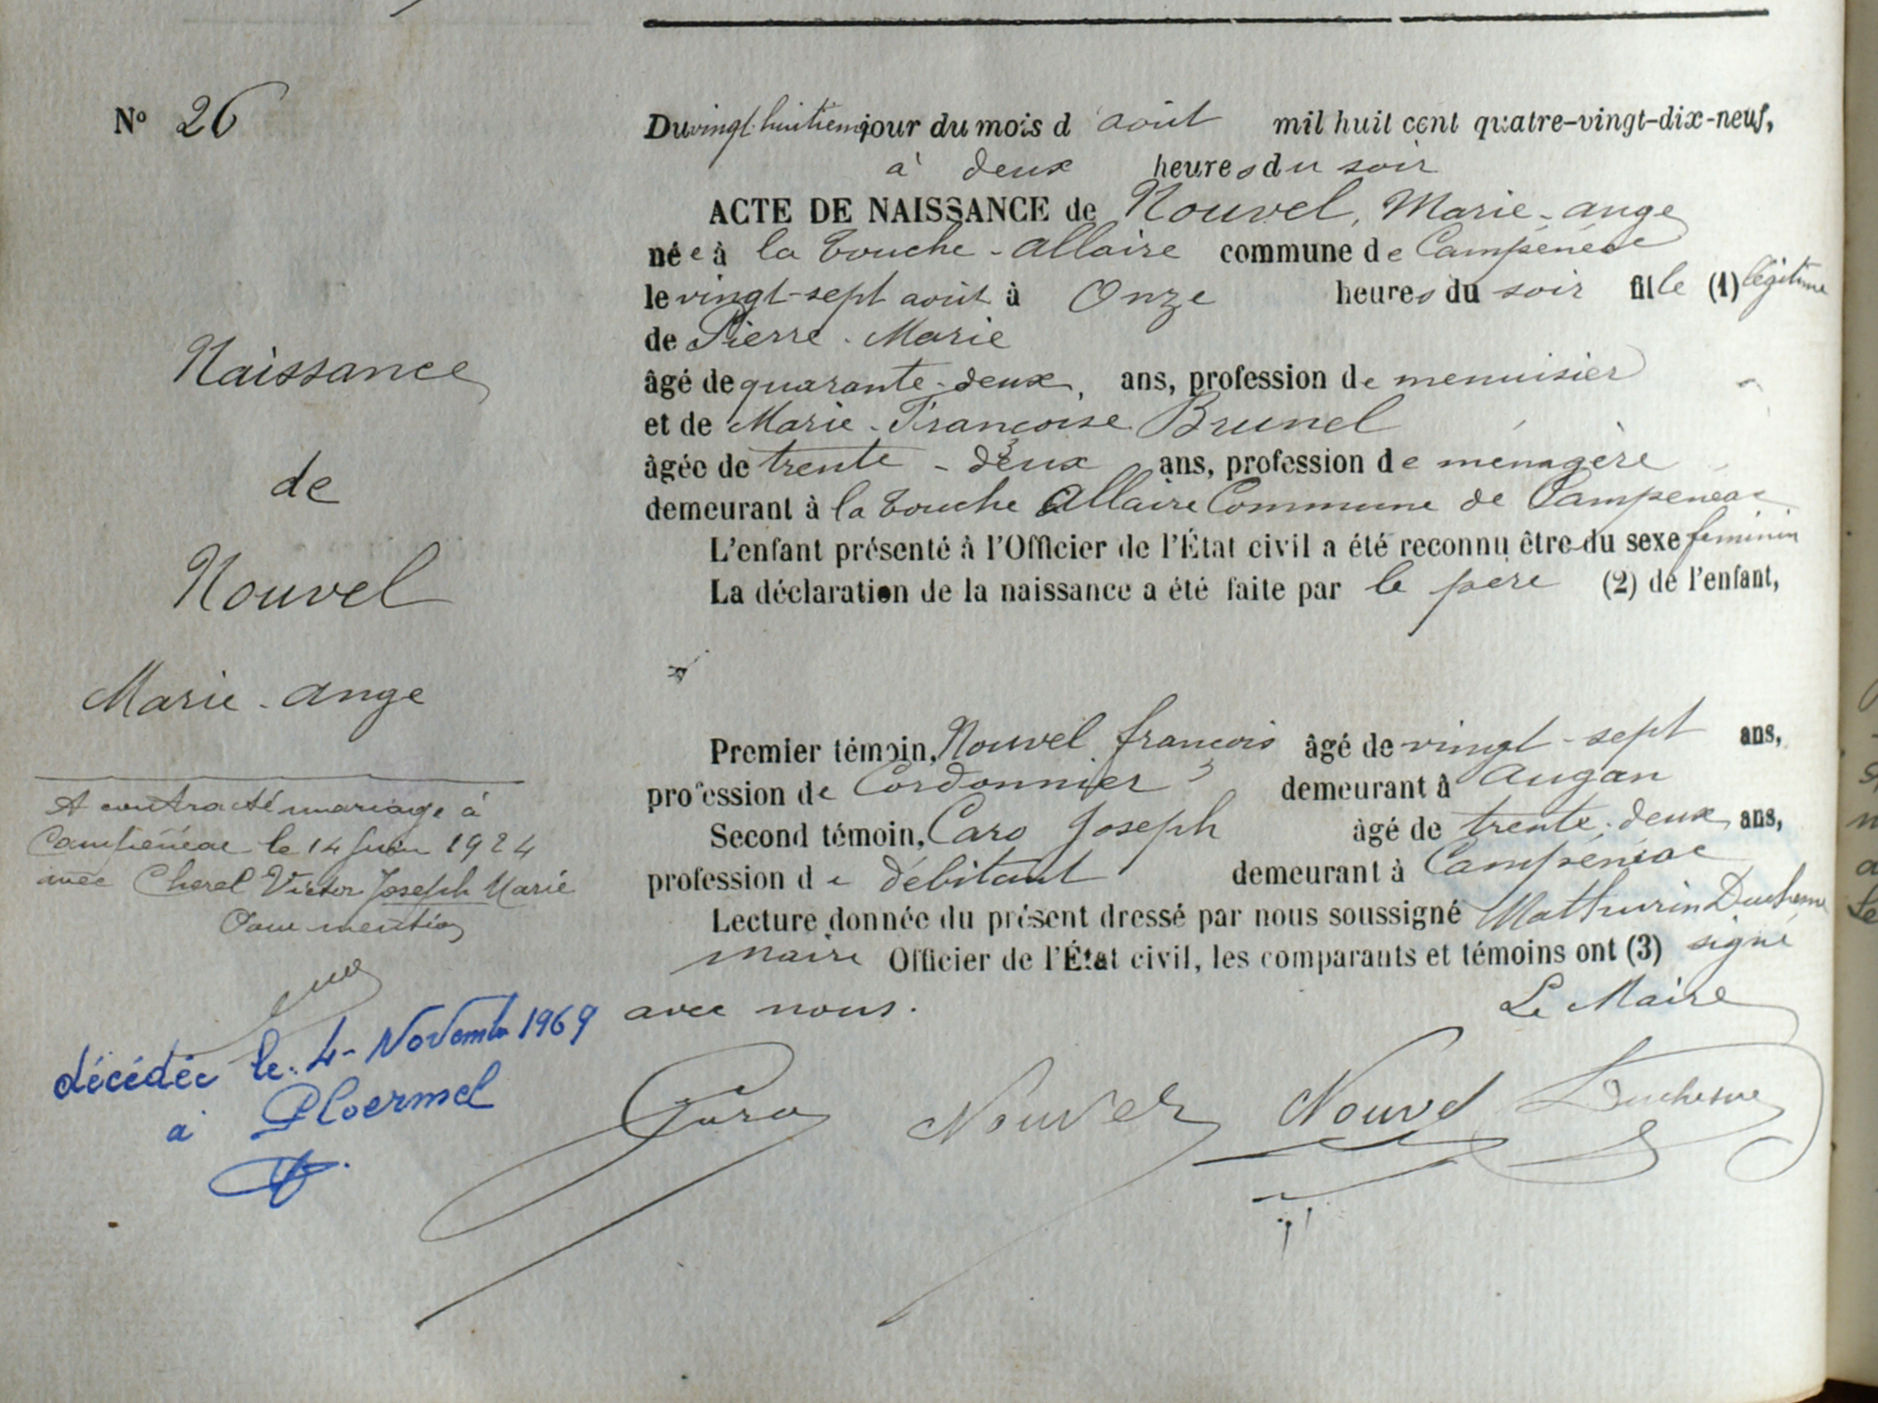 N° 26
Naissance
de
Nouvel
Marie-ange
A contracté mariage à
Campénéac le 14 Juin 1924
avec Cherel Victor Joseph Marie
Pour mention
décédée le 4 Novembre 1969
à Ploermel
Du vingt-huitième jour du mois d'août mil huit cent quatre-vingt-dix-neuf,
à deux heures du soir
ACTE DE NAISSANCE de Nouvel, Marie-ange
née à la touche-allaire commune de Campénéac
le vingt-sept août à Onze heures du soir fille (1) légitime
de Pierre-Marie
âgé de quarante-deux, ans, profession de menuisier
et de Marie-Françoise Brunel
âgée de trente-deux ans, profession de ménagère
demeurant à la touche allaire Commune de Campénéac
L'enfant présenté à l'Officier de l'État civil a été reconnu être du sexe féminin
La déclaration de la naissance a été faite par le père (2) de l'enfant,
Premier témoin, Nouvel françois âgé de vingt-sept ans,
profession de Cordonnier demeurant à augan
Second témoin, Caro Joseph âgé de trente-deux ans,
profession de débitant demeurant à Campénéac
Lecture donnée du présent dressé par nous soussigné Mathurin Duchesne
maire Officier de l'État civil, les comparants et témoins ont (3) signé
avec nous.
Le Maire
Caro Nouvel Nouvel Duchesne